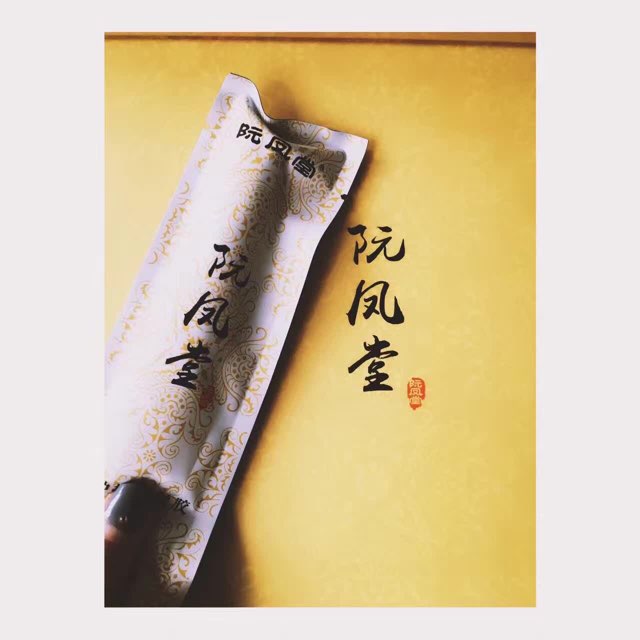 阮凤堂
阮凤堂
胶
阮凤堂
阮凤堂